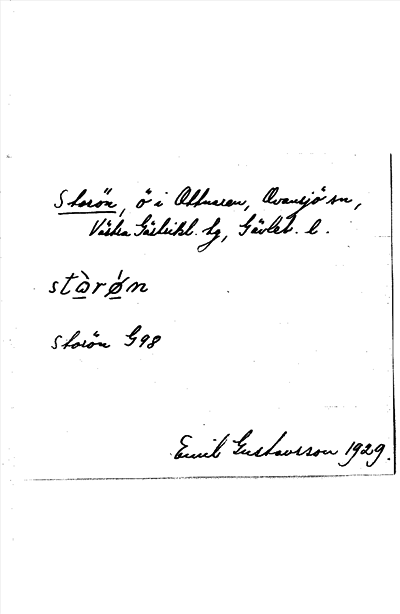 Storön, ö i Ottnaren, Ovansjö sn,
Västra Gästrikl. tg, Gävleb. l.
stòrǿn
Storön G98
Emil Gustavsson 1929.